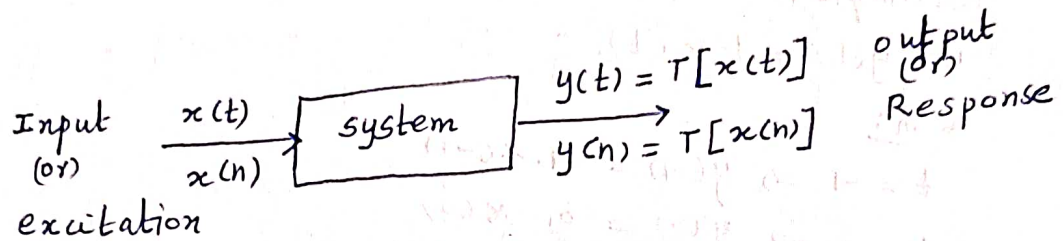 Input
(or)
excitation
x(t)
x(n)
system
y(t) = T[x(t)]
y(n) = T[x(n)]
output
(or)
Response